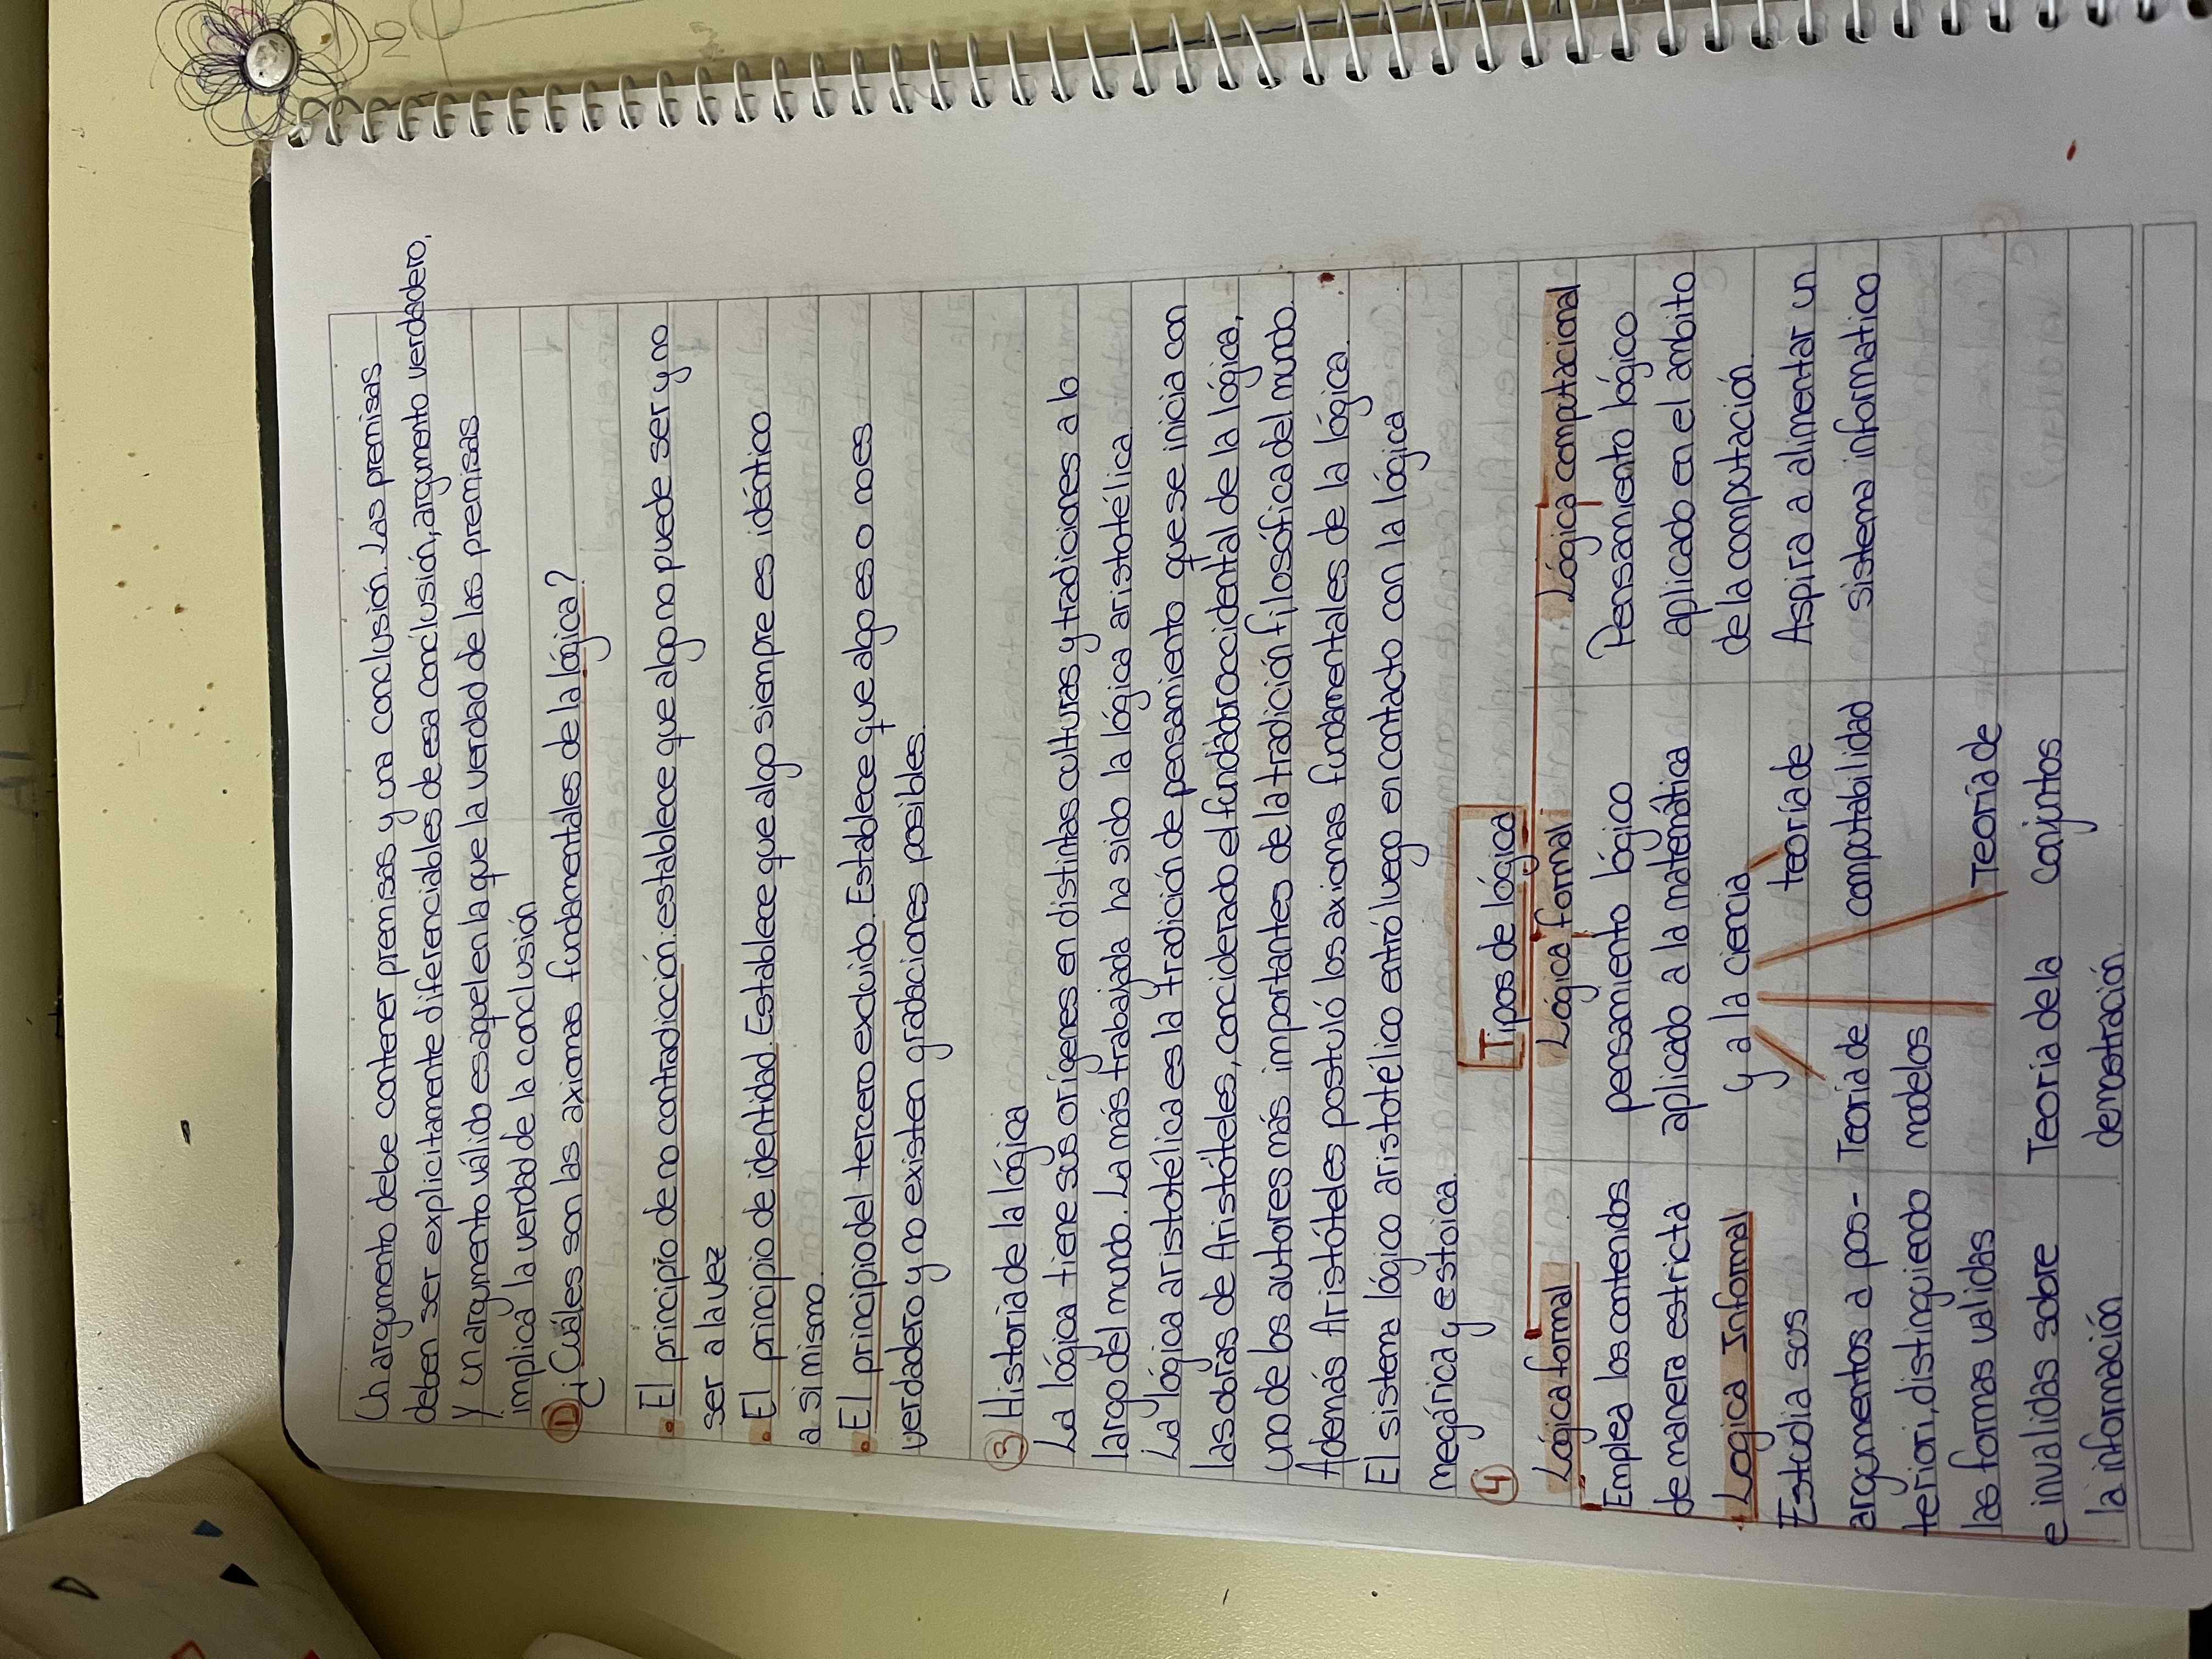 Un argumento debe contener premisas y una conclusión. Las premisas
deben ser explicitamente diferenciables de esa conclusión, argumento verdadero,
y un argumento válido es aquel en la que la verdad de las premisas
implica la verdad de la conclusión
① ¿Cuáles son las axiomas fundamentales de la lógica?
• El principio de no contradicción: establece que algo no puede ser y no
ser a la vez
• El principio de identidad. Establece que algo siempre es idéntico
a si mismo.
• El principio del tercero excluido. Establece que algo es o no es
verdadero y no existen gradaciones posibles.
③ Historia de la lógica
La lógica tiene sus orígenes en distintas culturas y tradiciones a lo
largo del mundo. La más trabajada ha sido la lógica aristotélica
La lógica aristotélica es la tradición de pensamiento que se inicia con
las obras de Aristóteles, conciderado el fundador occidental de la lógica,
uno de los autores más importantes de la tradición filosófica del mundo.
Además Aristóteles postuló los axiomas fundamentales de la lógica.
El sistema lógico aristotélico entró luego en contacto con la lógica
megárica y estoica.
④ Tipos de lógica
Lógica formal
Emplea los contenidos
de manera estricta
Logica Informal
Estudia sus
argumentos a pos-
teriori, distinguiendo
las formas validas
e invalidas sobre
la información
Lógica formal
pensamiento lógico
aplicado a la matemática
y a la ciencia
teoría de
computabilidad
Teoria de
modelos
Teoria de
conjuntos
Teoria de la
demostración
Lógica computacional
Pensamiento lógico
aplicado en el ambito
de la computación.
Aspira a alimentar un
sistema informatico